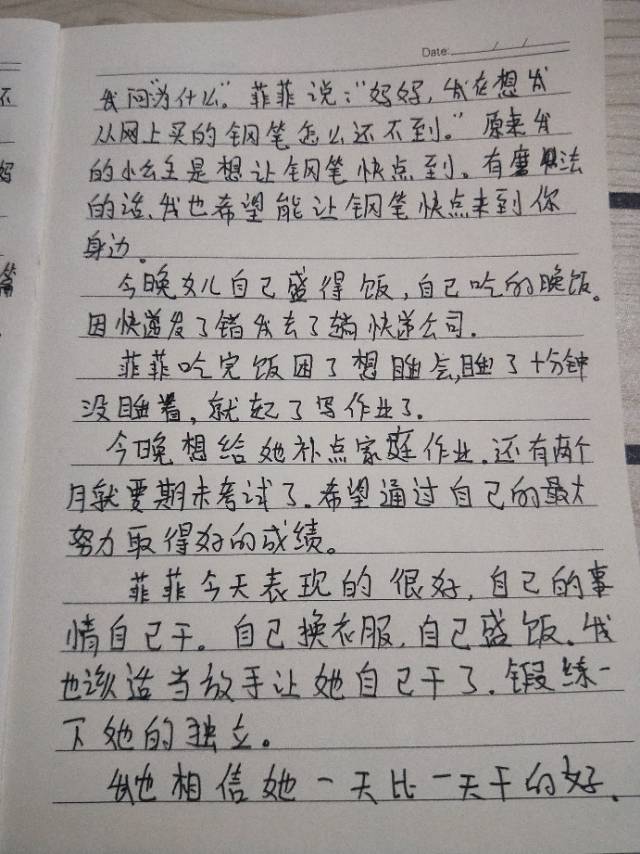 不
妈
篇
Date: / /
我问"为什么"。菲菲说:"妈妈,我在想我
从网上买的钢笔怎么还不到。"原来我
的小公主是想让钢笔快点到。有魔法
的话、我也希望能让钢笔快点来到你
身边。
今晚女儿自己盛得饭,自己吃的晚饭。
因快递发了错我去了趟快递公司.
菲菲吃完饭困了想睡会,睡了十分钟
没睡着,就起了写作业了.
今晚想给她补点家庭作业.还有两个
月就要期末考试了.希望通过自己的最大
努力取得好的成绩。
菲菲今天表现的很好,自己的事
情自己干。自己换衣服,自己盛饭.我
也该适当放手让她自己干了.锻练一
下她的独立。
我也相信她一天比一天干的好.